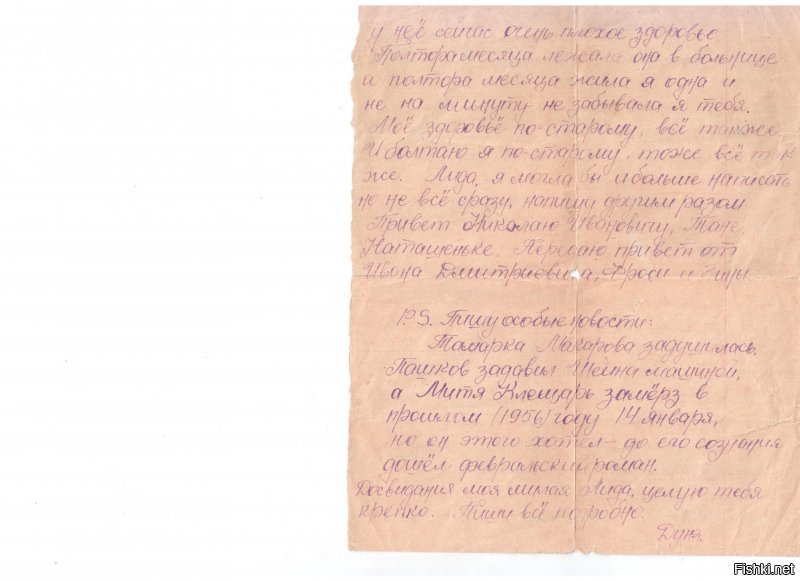 у неё сейчас очень плохое здоровье
Полтора месяца лежала она в больнице
и полтора месяца жила я одна и
не на минуту не забывала я тебя.
Моё здоровьё по-старому, всё также
И болтаю я по-старому, тоже всё так
же. Лида, я могла бы и больше написать
но не всё сразу, напишу другим разом
Привет Николаю Ивановичу, Тане,
Наташеньке. Передаю привет от
Ивана Дмитриевича, Фроси и Зины.
P.S. Пишу особые новости:
Тамарка Макарова задушилась.
Пашков задавил Шеина машиной,
а Митя Клещарь замёрз в
прошлом (1956) году 14 января,
но он этого хотел - до его сознания
дошёл февральский роман.
Досвидания моя милая Лида, целую тебя
крепко. Пиши всё подробно.
Дуня.
Fishki.net